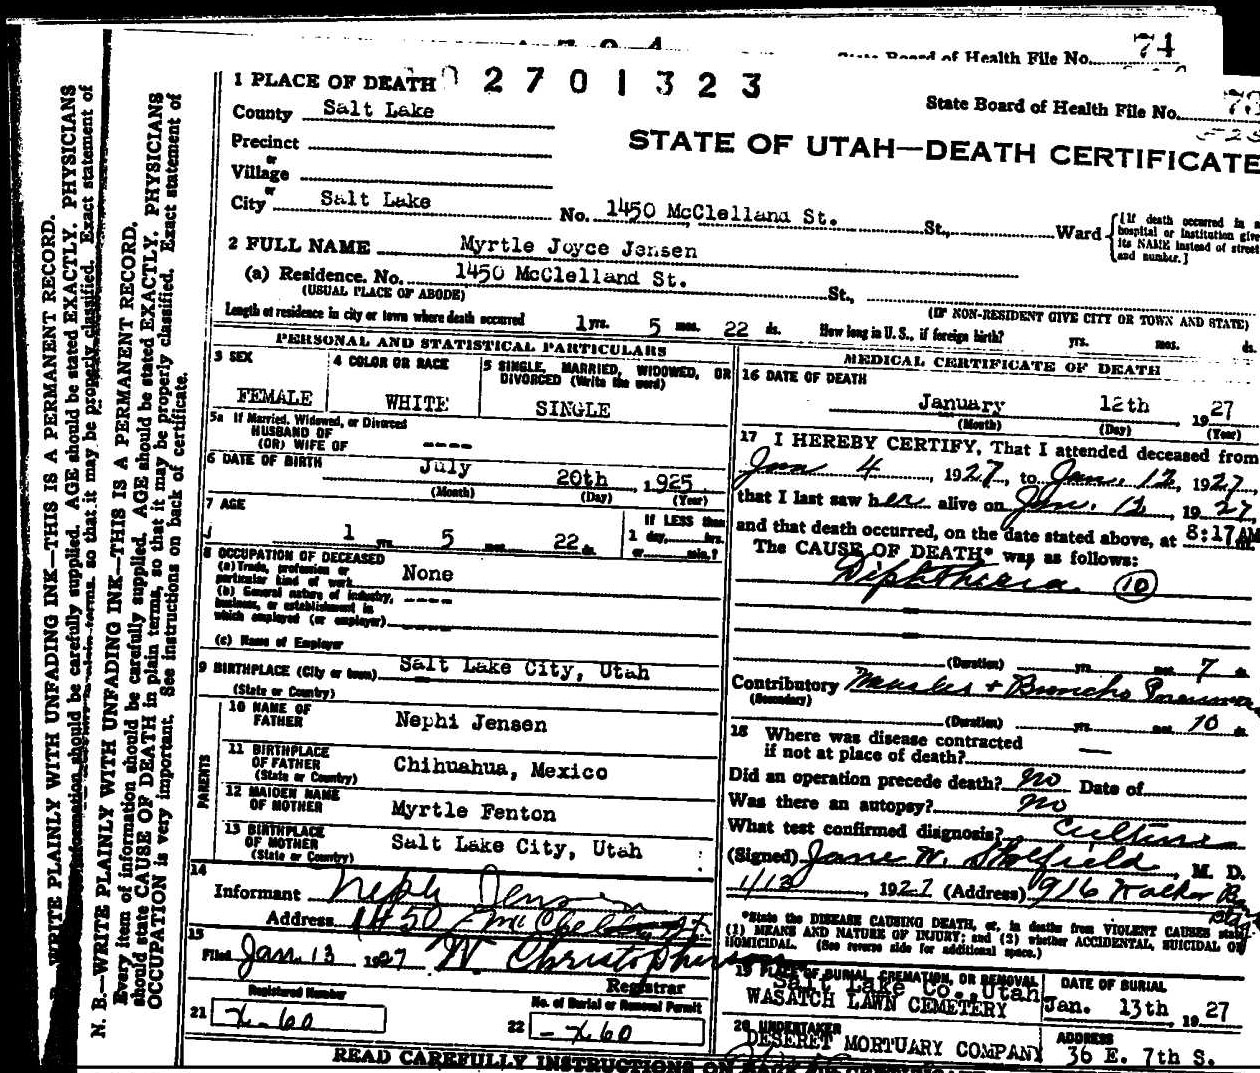 74
State Board of Health File No.
1 PLACE OF DEATH 2701323
State Board of Health File No.
County Salt Lake
STATE OF UTAH—DEATH CERTIFICATE
Precinct
or
Village
or
City Salt Lake No. 1450 McClelland St. St., Ward
[If death occurred in a
hospital or institution give
its NAME instead of street
and number.]
2 FULL NAME Myrtle Joyce Jensen
(a) Residence. No. 1450 McClelland St. St.,
(USUAL PLACE OF ABODE)
(IF NON-RESIDENT GIVE CITY OR TOWN AND STATE)
Length of residence in city or town where death occurred 1 yrs. 5 mos. 22 ds. How long in U. S., if foreign birth? yrs. mos. ds.
PERSONAL AND STATISTICAL PARTICULARS
3 SEX
FEMALE
4 COLOR OR RACE
WHITE
5 SINGLE, MARRIED, WIDOWED, OR
DIVORCED (Write the word)
SINGLE
5a If Married, Widowed, or Divorced
HUSBAND OF
(OR) WIFE OF ----
6 DATE OF BIRTH July 20th, 1925
(Month) (Day) (Year)
7 AGE
1 yrs. 5 mos. 22 ds.
If LESS than
1 day, hrs.
or min.?
8 OCCUPATION OF DECEASED
(a) Trade, profession or
particular kind of work None
(b) General nature of industry,
business, or establishment in
which employed (or employer) ----
(c) Name of Employer
9 BIRTHPLACE (City or town) Salt Lake City, Utah
(State or Country)
PARENTS
10 NAME OF
FATHER Nephi Jensen
11 BIRTHPLACE
OF FATHER
(State or Country) Chihuahua, Mexico
12 MAIDEN NAME
OF MOTHER Myrtle Fenton
13 BIRTHPLACE
OF MOTHER
(State or Country) Salt Lake City, Utah
14
Informant Nephi Jensen
Address 1450 McClelland St.
15
Filed Jan. 13 1927 W Christopherson
Registrar
Registered Number
21 X-60
No. of Burial or Removal Permit
22 -X60
MEDICAL CERTIFICATE OF DEATH
16 DATE OF DEATH
January 12th 1927
(Month) (Day) (Year)
17 I HEREBY CERTIFY, That I attended deceased from
Jan 4, 1927, to Jan. 12, 1927,
that I last saw her alive on Jan. 12, 1927
and that death occurred, on the date stated above, at 8:17 AM
The CAUSE OF DEATH* was as follows:
Diphtheria 10
(Duration) yrs. mos. 7 ds.
Contributory Measles + Broncho Pneumonia
(Secondary)
(Duration) yrs. mos. 10 ds.
18 Where was disease contracted
if not at place of death? —
Did an operation precede death? no Date of
Was there an autopsy? no
What test confirmed diagnosis? Culture
(Signed) Jane W. Skolfield, M. D.
1/13, 1927 (Address) 916 Walker
*State the DISEASE CAUSING DEATH, or, in deaths from VIOLENT CAUSES state
(1) MEANS AND NATURE OF INJURY; and (2) whether ACCIDENTAL, SUICIDAL OR
HOMICIDAL. (See reverse side for additional space.)
19 PLACE OF BURIAL, CREMATION, OR REMOVAL
Salt Lake Co., Utah
WASATCH LAWN CEMETERY
DATE OF BURIAL
Jan. 13th 1927
20 UNDERTAKER
DESERET MORTUARY COMPANY
ADDRESS
36 E. 7th S.
READ CAREFULLY INSTRUCTIONS ON BACK
WRITE PLAINLY WITH UNFADING INK—THIS IS A PERMANENT RECORD.
information should be carefully supplied. AGE should be stated EXACTLY. PHYSICIANS
in terms, so that it may be properly classified. Exact statement of
N. B.—WRITE PLAINLY WITH UNFADING INK—THIS IS A PERMANENT RECORD.
Every item of information should be carefully supplied. AGE should be stated EXACTLY. PHYSICIANS
should state CAUSE OF DEATH in plain terms, so that it may be properly classified. Exact statement of
OCCUPATION is very important. See instructions on back of certificate.